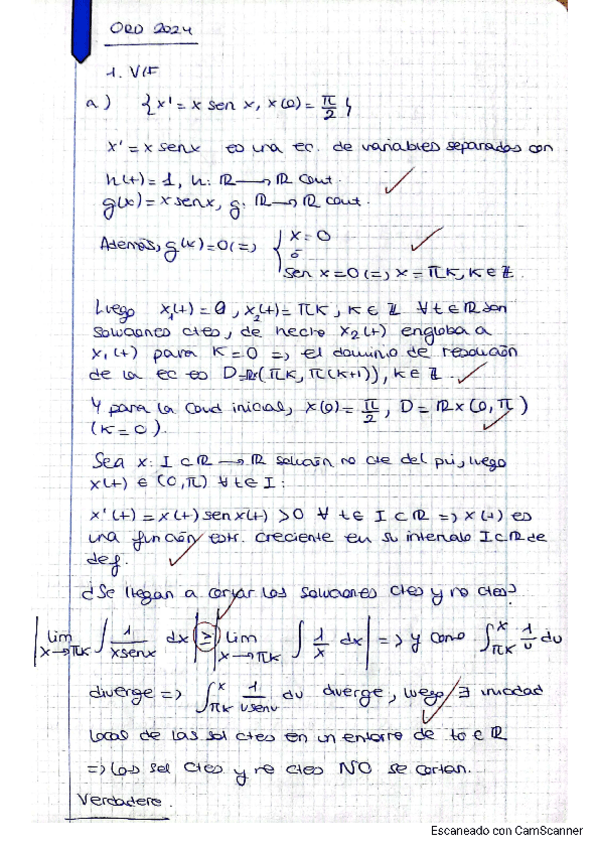 ORD 2024
1. V/F
a) {x' = x sen x, x(0) = π/2}
x' = x sen x es una ec. de variables separadas con
h(t) = 1, h: ℝ → ℝ cont.
g(x) = x sen x, g: ℝ → ℝ cont.
Además, g(x) = 0 (=) { x = 0
ó
sen x = 0 (=) x = πk, k ∈ ℤ.
Luego x₁(t) = 0, x₂(t) = πk, k ∈ ℤ ∀ t ∈ ℝ son
soluciones ctes, de hecho x₂(t) engloba a
x₁(t) para k = 0 => el dominio de resolución
de la ec es D = ℝx(πk, π(k+1)), k ∈ ℤ.
Y para la cond inicial, x(0) = π/2, D = ℝx(0, π)
(k = 0).
Sea x: I ⊂ ℝ → ℝ solución no cte del pvi, luego
x(t) ∈ (0, π) ∀ t ∈ I:
x'(t) = x(t) sen x(t) > 0 ∀ t ∈ I ⊂ ℝ => x(t) es
una función estr. creciente en su intervalo I ⊂ ℝ de
def.
¿Se llegan a cortar las soluciones ctes y no ctes?
|lim x→πk ∫ 1/(x sen x) dx| ≥ |lim x→πk ∫ 1/x dx| => y como ∫_{πk}^{x} 1/u du
diverge => ∫_{πk}^{x} 1/(u sen u) du diverge, luego ∃ unicidad
local de las sol ctes en un entorno de to ∈ ℝ
=> Las sol ctes y no ctes NO se cortan.
Verdadero.
Escaneado con CamScanner